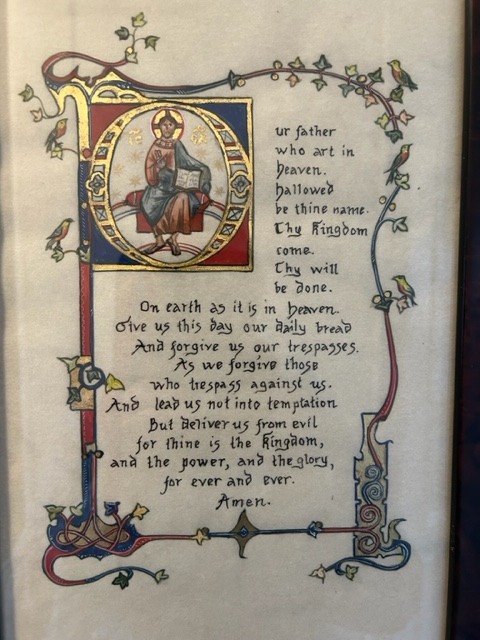 Our father
who art in
heaven.
hallowed
be thine name.
Thy Kingdom
come.
Thy will
be done.
On earth as it is in heaven.
Give us this day our daily bread
And forgive us our trespasses.
As we forgive those
who trespass against us.
And lead us not into temptation
But deliver us from evil
for thine is the Kingdom,
and the power, and the glory,
for ever and ever.
Amen.